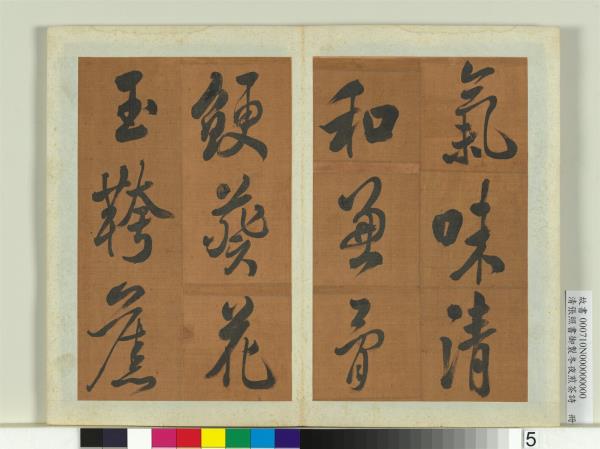 氣味清
和兼骨
鯁葵花
玉鞾舊
故書000710N000000000
清張照書御製冬夜煎茶詩 冊
5